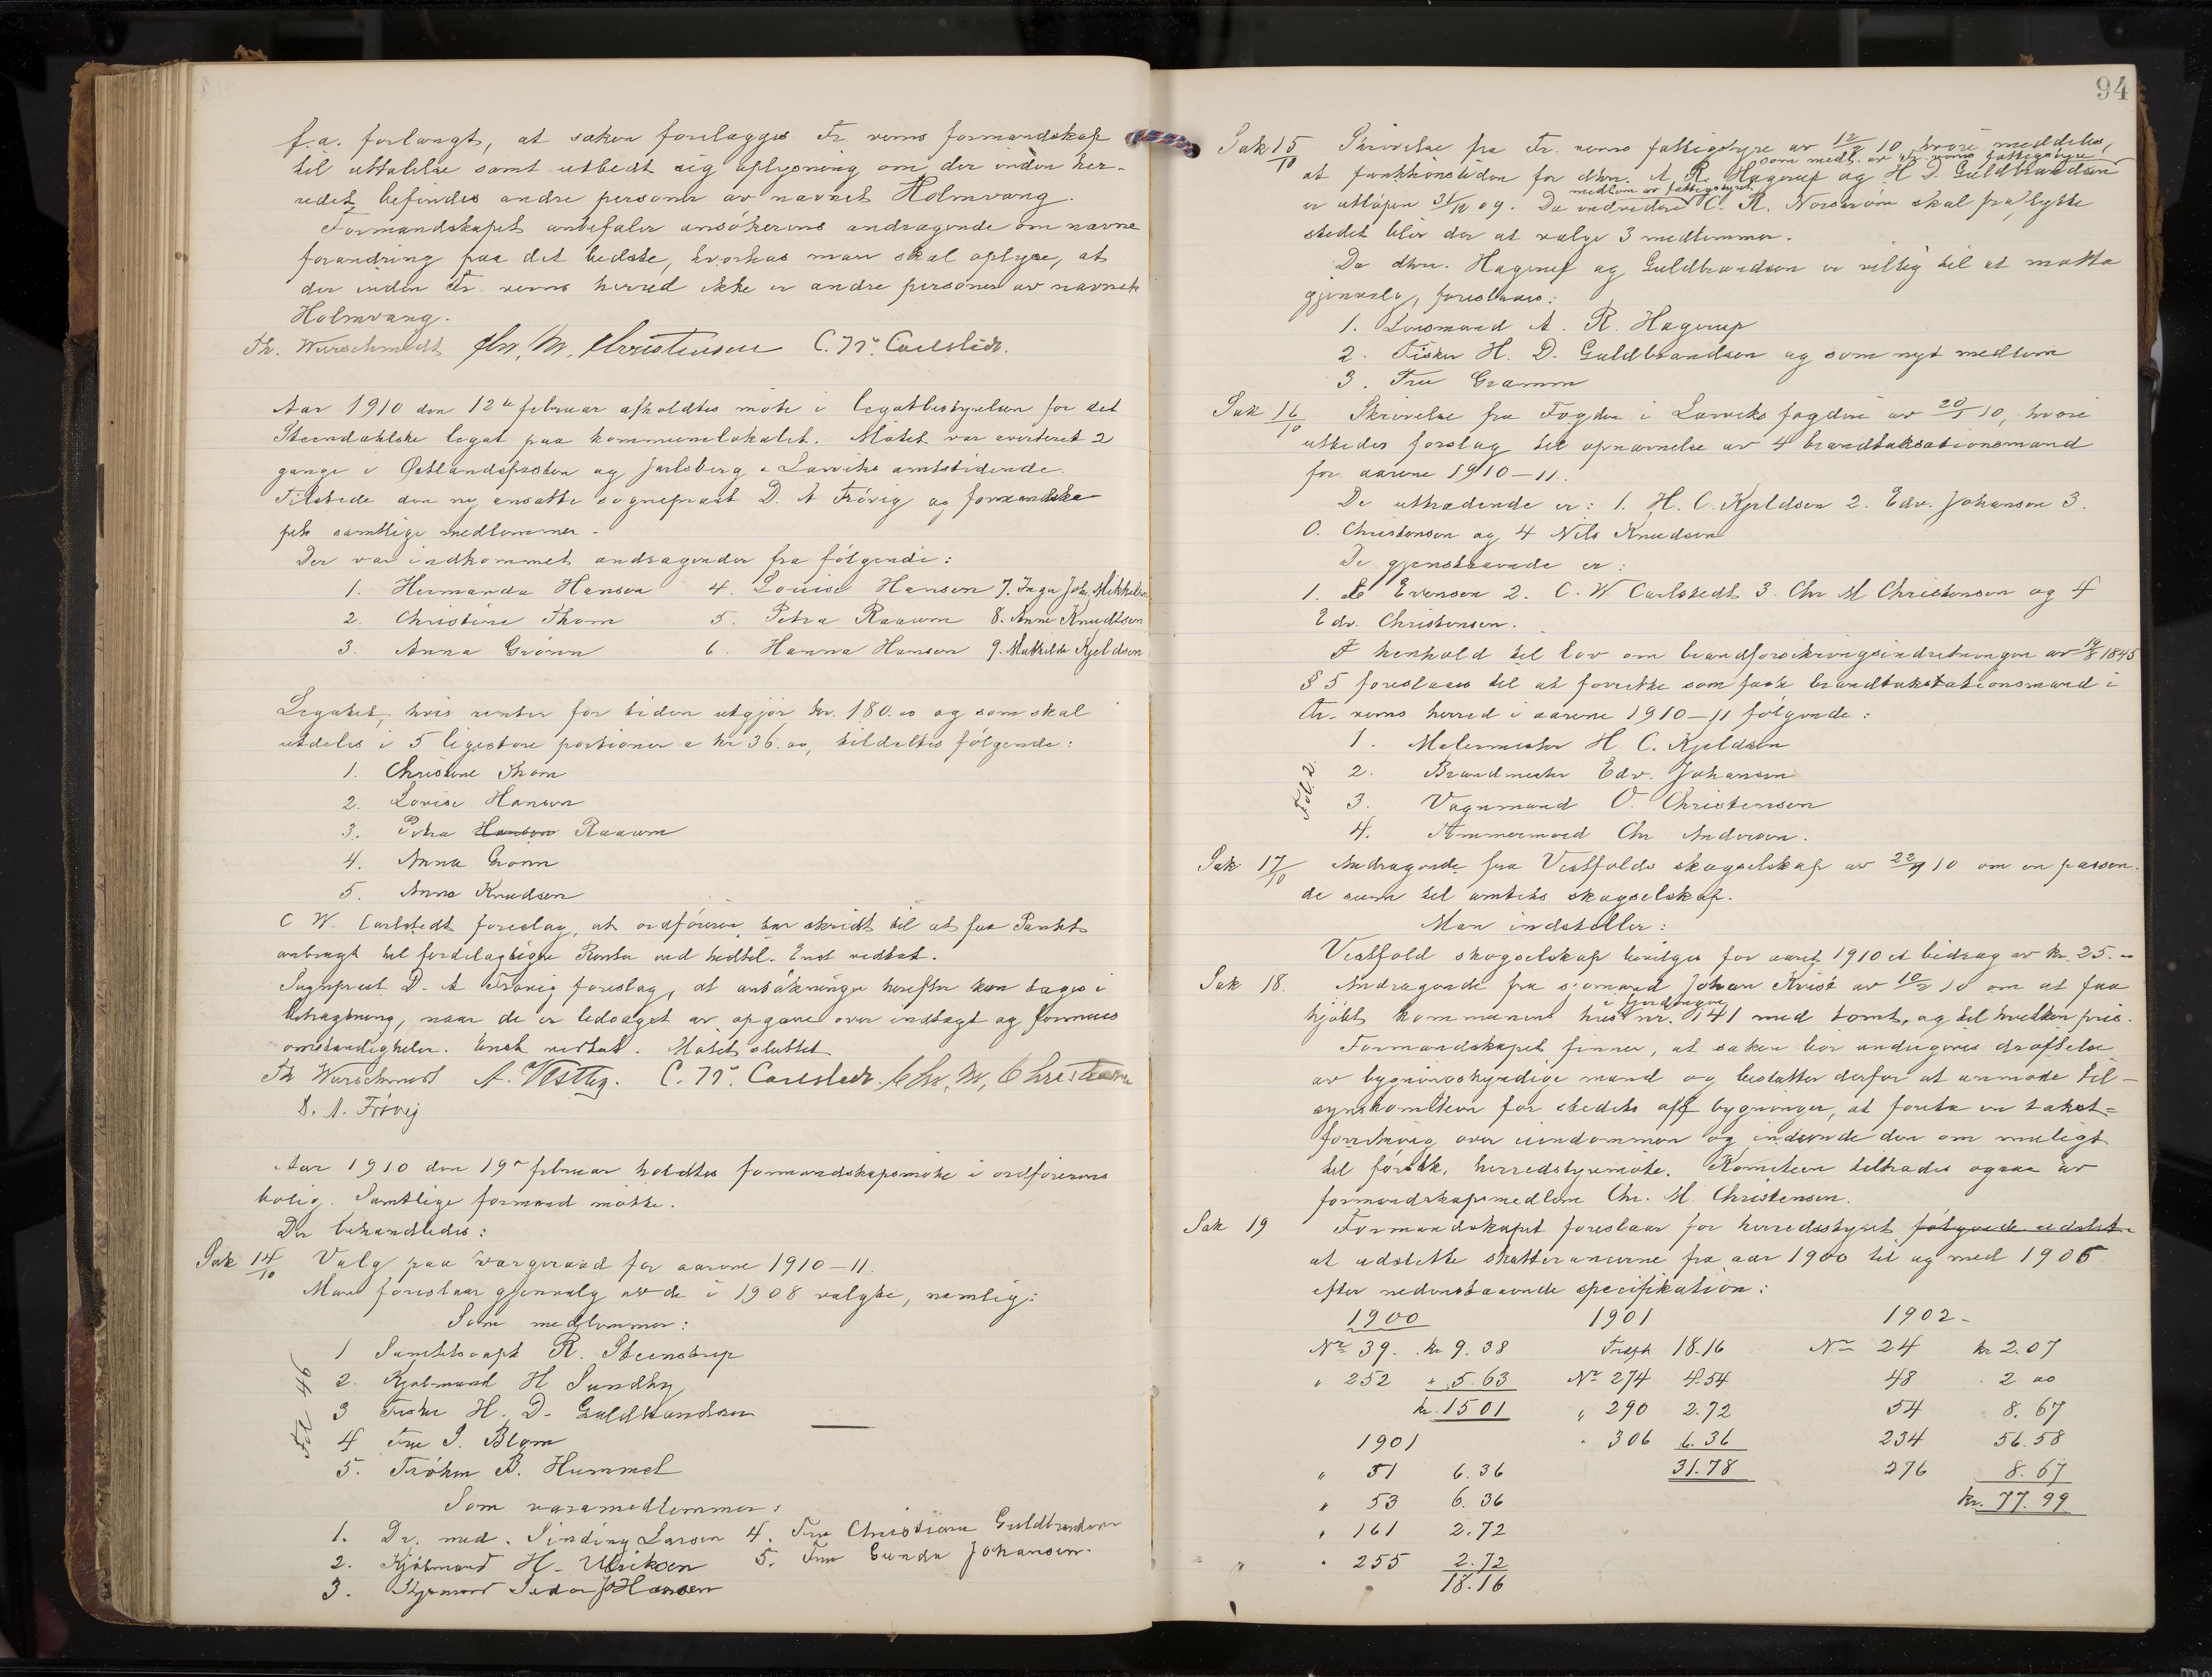 f.a. forlangt, at saken forelægges Fr. verns formandskap
til uttalelse samt utbedt sig oplysning om der inden her-
redet befindes andre personer av navnet Holmvang.
Formandskapet anbefaler ansökerens andragende om navne
forandring paa det bedste, hvorhos man skal oplyse, at
der inden Fr. verns herred ikke er andre personer av navnet
Holmvang.
Th. Wurschmidt Chr. M. Christensen C. W. Carlstedt.
Aar 1910 den 12te februar afholdtes möte i legatbestyrelsen for det
Steendahlske legat paa kommunelokalet. Mötet var averteret 2
gange i Østlandsposten og Jarlsberg & Larviks amtstidende.
Tilstede den ny ansatte sogneprest D. A Frövig og formandska
pets samtlige medlemmer.
Der var indkommet andragender fra fölgende:
1. Hermanda Hansen 4. Louise Hansen 7. Inga Joh. Mikkelsen
2. Christine Thom 5. Petra Raaum 8. Anne Knudtsen
3. Anna Grönn 6. Hanna Hansen 9. Mathilde Kjeldsen
Legatet, hvis renter for tiden utgjör kr. 180.00 og som skal
utdeles i 5 ligestore portioner a kr 36.00, tildeltes fölgende:
1. Christine Thom
2. Lovise Hansen
3. Petra Hansen Raaum
4. Anna Grönn
5. Anne Knudsen
C W. Carlstedt foreslog, at ordföreren tar skridt til at faa
anbragt til fordelagtigere Renter end hidtil. Enst vedtat.
Sogneprest D. A Frövig foreslog, at ansökninger herefter kun tages i
betragtning, naar de er ledsaget av opgave over indtægt og formues
omstændigheter. Enst vedtat. Mötet sluttet
Th Wurschmidt A. C. W. Carlstedt. Chr. M. Christensen
D. A. Frövig
Aar 1910 den 19de februar holdtes formandskapsmöte i ordförerens
bolig. Samtlige formænd mötte.
Der behandledes:
Sak 14/10 Valg paa vergeraad for aarene 1910-11.
Man foreslaar gjenvalg av de i 1908 valgte, nemlig:
Som medlemmer:
1 R. Steenstrup
2. Kjøbmand H Sundby
3 Fisker H. D. Guldbrandsen
4 Fru J. Blom
5. Fröken B. Hummel
Som varamedlemmer:
1. Dr. med. Sinding Larsen 4. Fru Christiane Guldbrandsen
2. Kjöbmand H. Ulriksen 5. Fru Gunda Johansen.
3. Hansen
94
Sak 15/10 Skrivelse fra Fr. verns fattigstyre av 12/2 10, hvori meddeles,
som medl. av Fr. verns fattigstyre
at funktionstiden for dhrr. A. R. Hagerup og H. D. Guldbrandsen
medlem av fattigstyret,
er utlöpen 31/12 09. Da endvidere C. R. Norström skal fra flytte
stedet blir der at vælge 3 medlemmer.
Da dhrr. Hagerup og Guldbrandsen er villig til at motta
gjenvalg, foreslaaes:
1. Lensmand A. R. Hagerup
2. Fisker H. D. Guldbrandsen og som nyt medlem
3. Fru Gramm
Sak 16/10 Skrivelse fra Fogden i Larviks fogderi av 20/1 10, hvori
utbedes forslag til opnævnelse av 4 brandtaksationsmænd
for aarene 1910-11.
De uttrædende er: 1. H. C. Kjeldsen 2. Edv. Johansen 3.
O. Christensen og 4 Nils Knudsen
De gjenstaaende er:
1. Evensen 2. C. W Carlstedt 3. Chr M Christensen og 4
Edv. Christensen.
I henhold til lov om brandforsikringsindretningen av 19/8 1845
§ 5 foreslaaes til at forrette som faste brandtakstationsmænd i
Fr. verns herred i aarene 1910-11 fölgende:
1. Malermester H. C. Kjeldsen
2. Brandmester Edv. Johansen
3. Vognmand O. Christensen
4. Tømmermand Chr Andersen.
Sak 17/10 Andragende fra Vestfolds skogselskap av 10 om en passen-
de sum til amtets skogselskap.
Man indstiller:
Vestfold skogselskap bevilges for aaret 1910 et bidrag av kr. 25.00
Sak 18. Andragende fra sjömand Johan Kvist av 10/2 10 om at faa
kjöbt kommunens hus nr. 141 med tomt, og til hvilken pris.
Formandskapet finner, at saken bör undergives dröftelse
av bygningskyndige mænd og beslutter derfor at anmode til-
synskomiteen for stedets off bygninger, at foreta en takst-
forretning over eiendommen og indsende den om muligt
til förstk. herredstyremöte. Komiteen tiltrædes ogsaa av
formandskapsmedlem Chr. M. Christensen.
Sak 19 Formandskapet foreslaar for herredsstyret fölgende utslet-
at udslette skatterancerne fra aar 1900 til og med 1906
efter nedenstaaende specifikation:
1900 1901 1902-
Nr 39. kr 9.38 Trspt 18.16 Nr 24 kr 2.07
" 252 " 5.63 Nr 274 4.54 48 2 00
kr. 1501 " 290 2.72 54 8.67
1901 " 306 6.36 234 56.58
" 51 6.36 31.78 276 8.67
" 53 6.36 kr. 77.99
" 161 2.72
" 255 2.72
18.16